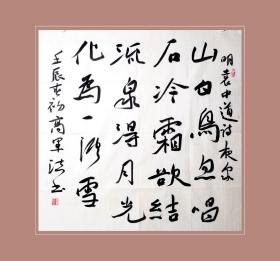 明袁中道诗夜泉
山白鸟忽鸣
石冷霜欲结
流泉得月光
化为一溪雪
壬辰春初高军法书